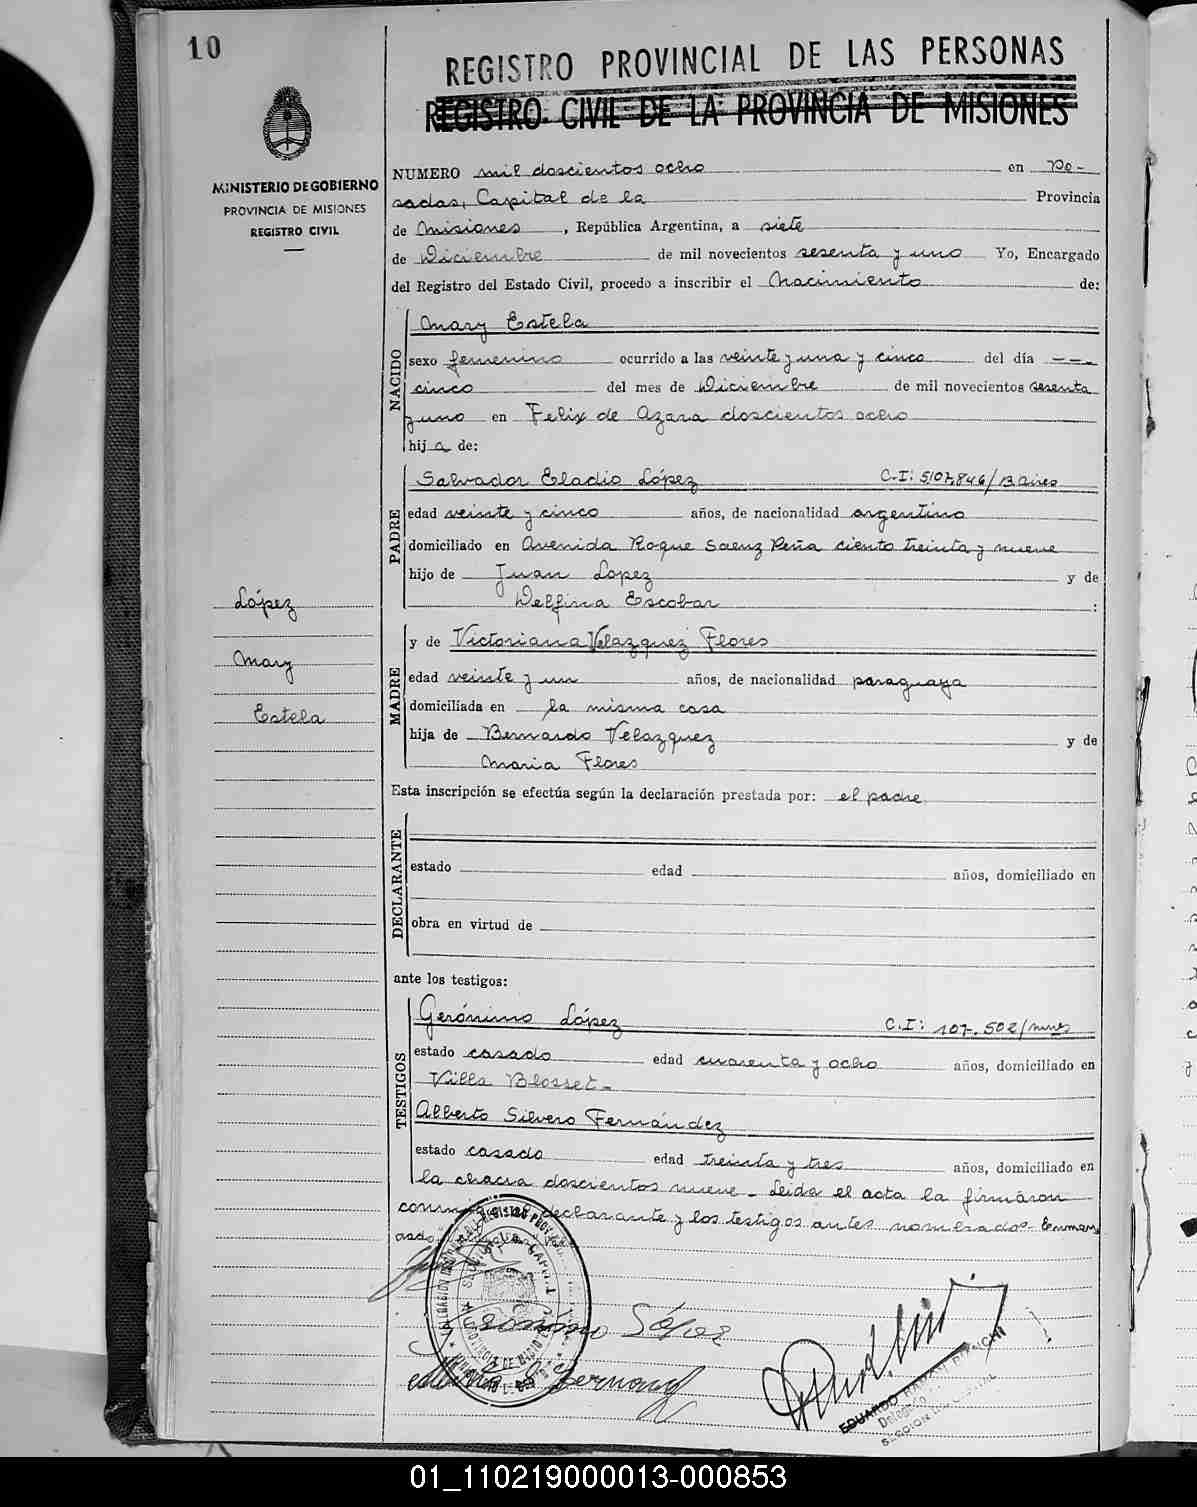 10
REGISTRO PROVINCIAL DE LAS PERSONAS
REGISTRO CIVIL DE LA PROVINCIA DE MISIONES
MINISTERIO DE GOBIERNO
PROVINCIA DE MISIONES
REGISTRO CIVIL
NUMERO mil doscientos ocho en Po-
sadas, Capital de la Provincia
de Misiones, República Argentina, a siete
de Diciembre de mil novecientos sesenta y uno Yo, Encargado
del Registro del Estado Civil, procedo a inscribir el Nacimiento de:
NACIDO
Mary Estela
sexo femenino ocurrido a las veinte y una y cinco del día ---
cinco del mes de Diciembre de mil novecientos sesenta
y uno en Felix de Azara doscientos ocho
hija de:
PADRE
Salvador Eladio López C.I: 5107.846/B Aires
edad veinte y cinco años, de nacionalidad argentino
domiciliado en Avenida Roque Saenz Peña ciento treinta y nueve
hijo de Juan Lopez y de
Delfina Escobar :
López
Mary
Estela
MADRE
y de Victoriana Velazquez Flores
edad veinte y un años, de nacionalidad paraguaya
domiciliada en la misma casa
hija de Bernardo Velazquez y de
Maria Flores
Esta inscripción se efectúa según la declaración prestada por: el padre
DECLARANTE
estado edad años, domiciliado en
obra en virtud de
ante los testigos:
TESTIGOS
Gerónimo López C.I: 107.502/mnes
estado casado edad cuarenta y ocho años, domiciliado en
Villa Blosset-
Alberto Silvero Fernández
estado casado edad treinta y tres años, domiciliado en
la chacra doscientos nueve - Leida el acta la firmaron
declarante y los testigos antes nombrados - Enmen
ado
Geronimo López
EDUARDO
01_110219000013-000853